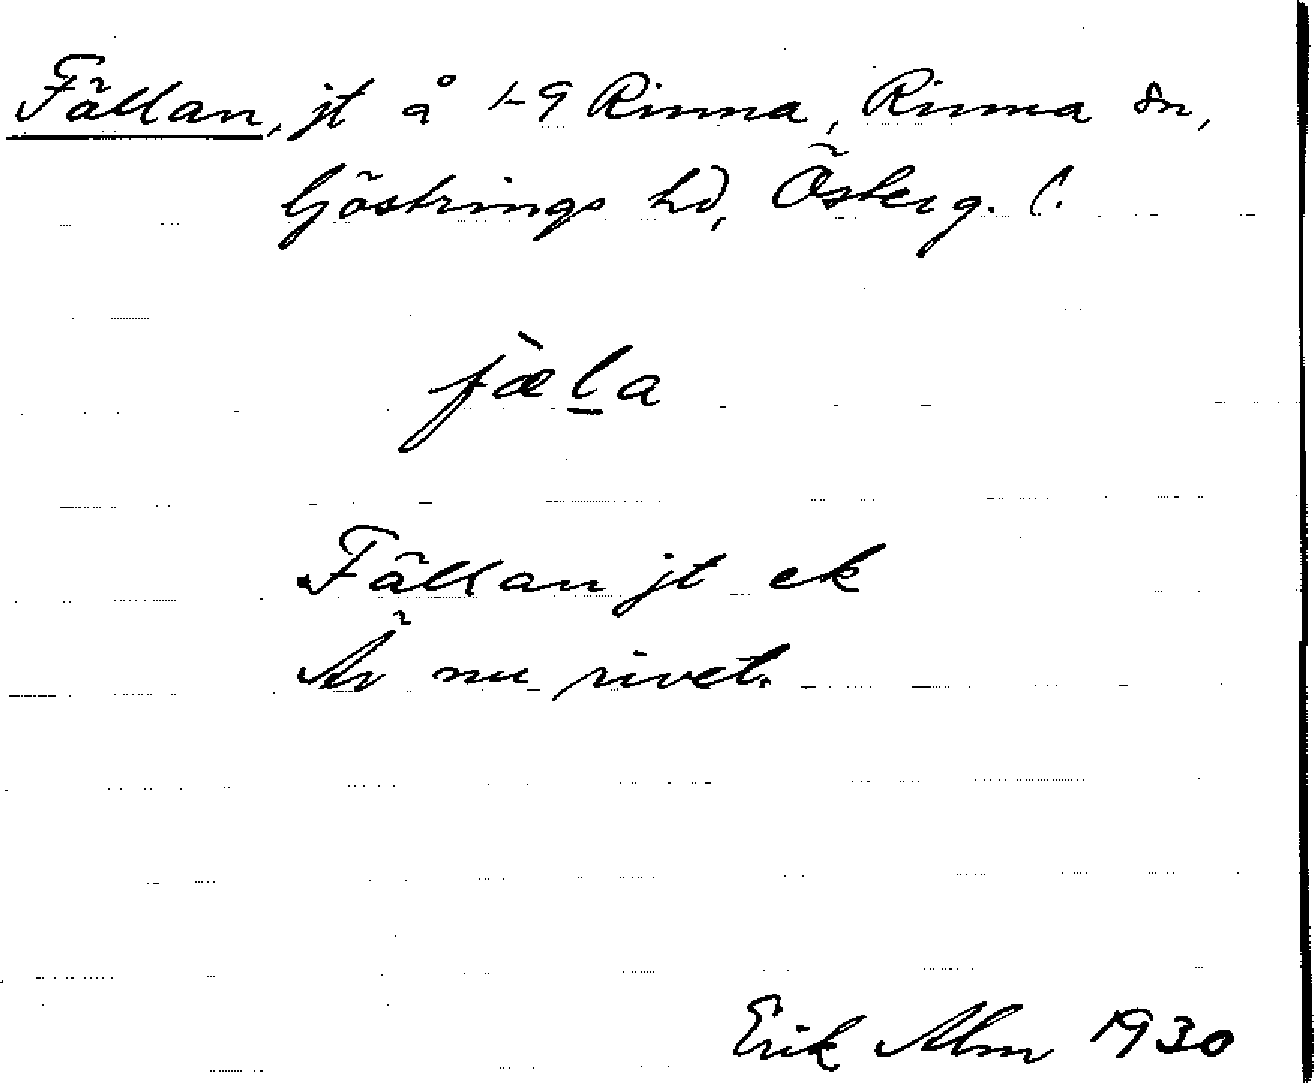 Fällan, jt å 1-9 Rinna, Rinna sn,
Göstrings hd, Österg. l.
fæ̀l̲a
Fällan jt ek
Är nu rivet.
Erik Alm 1930